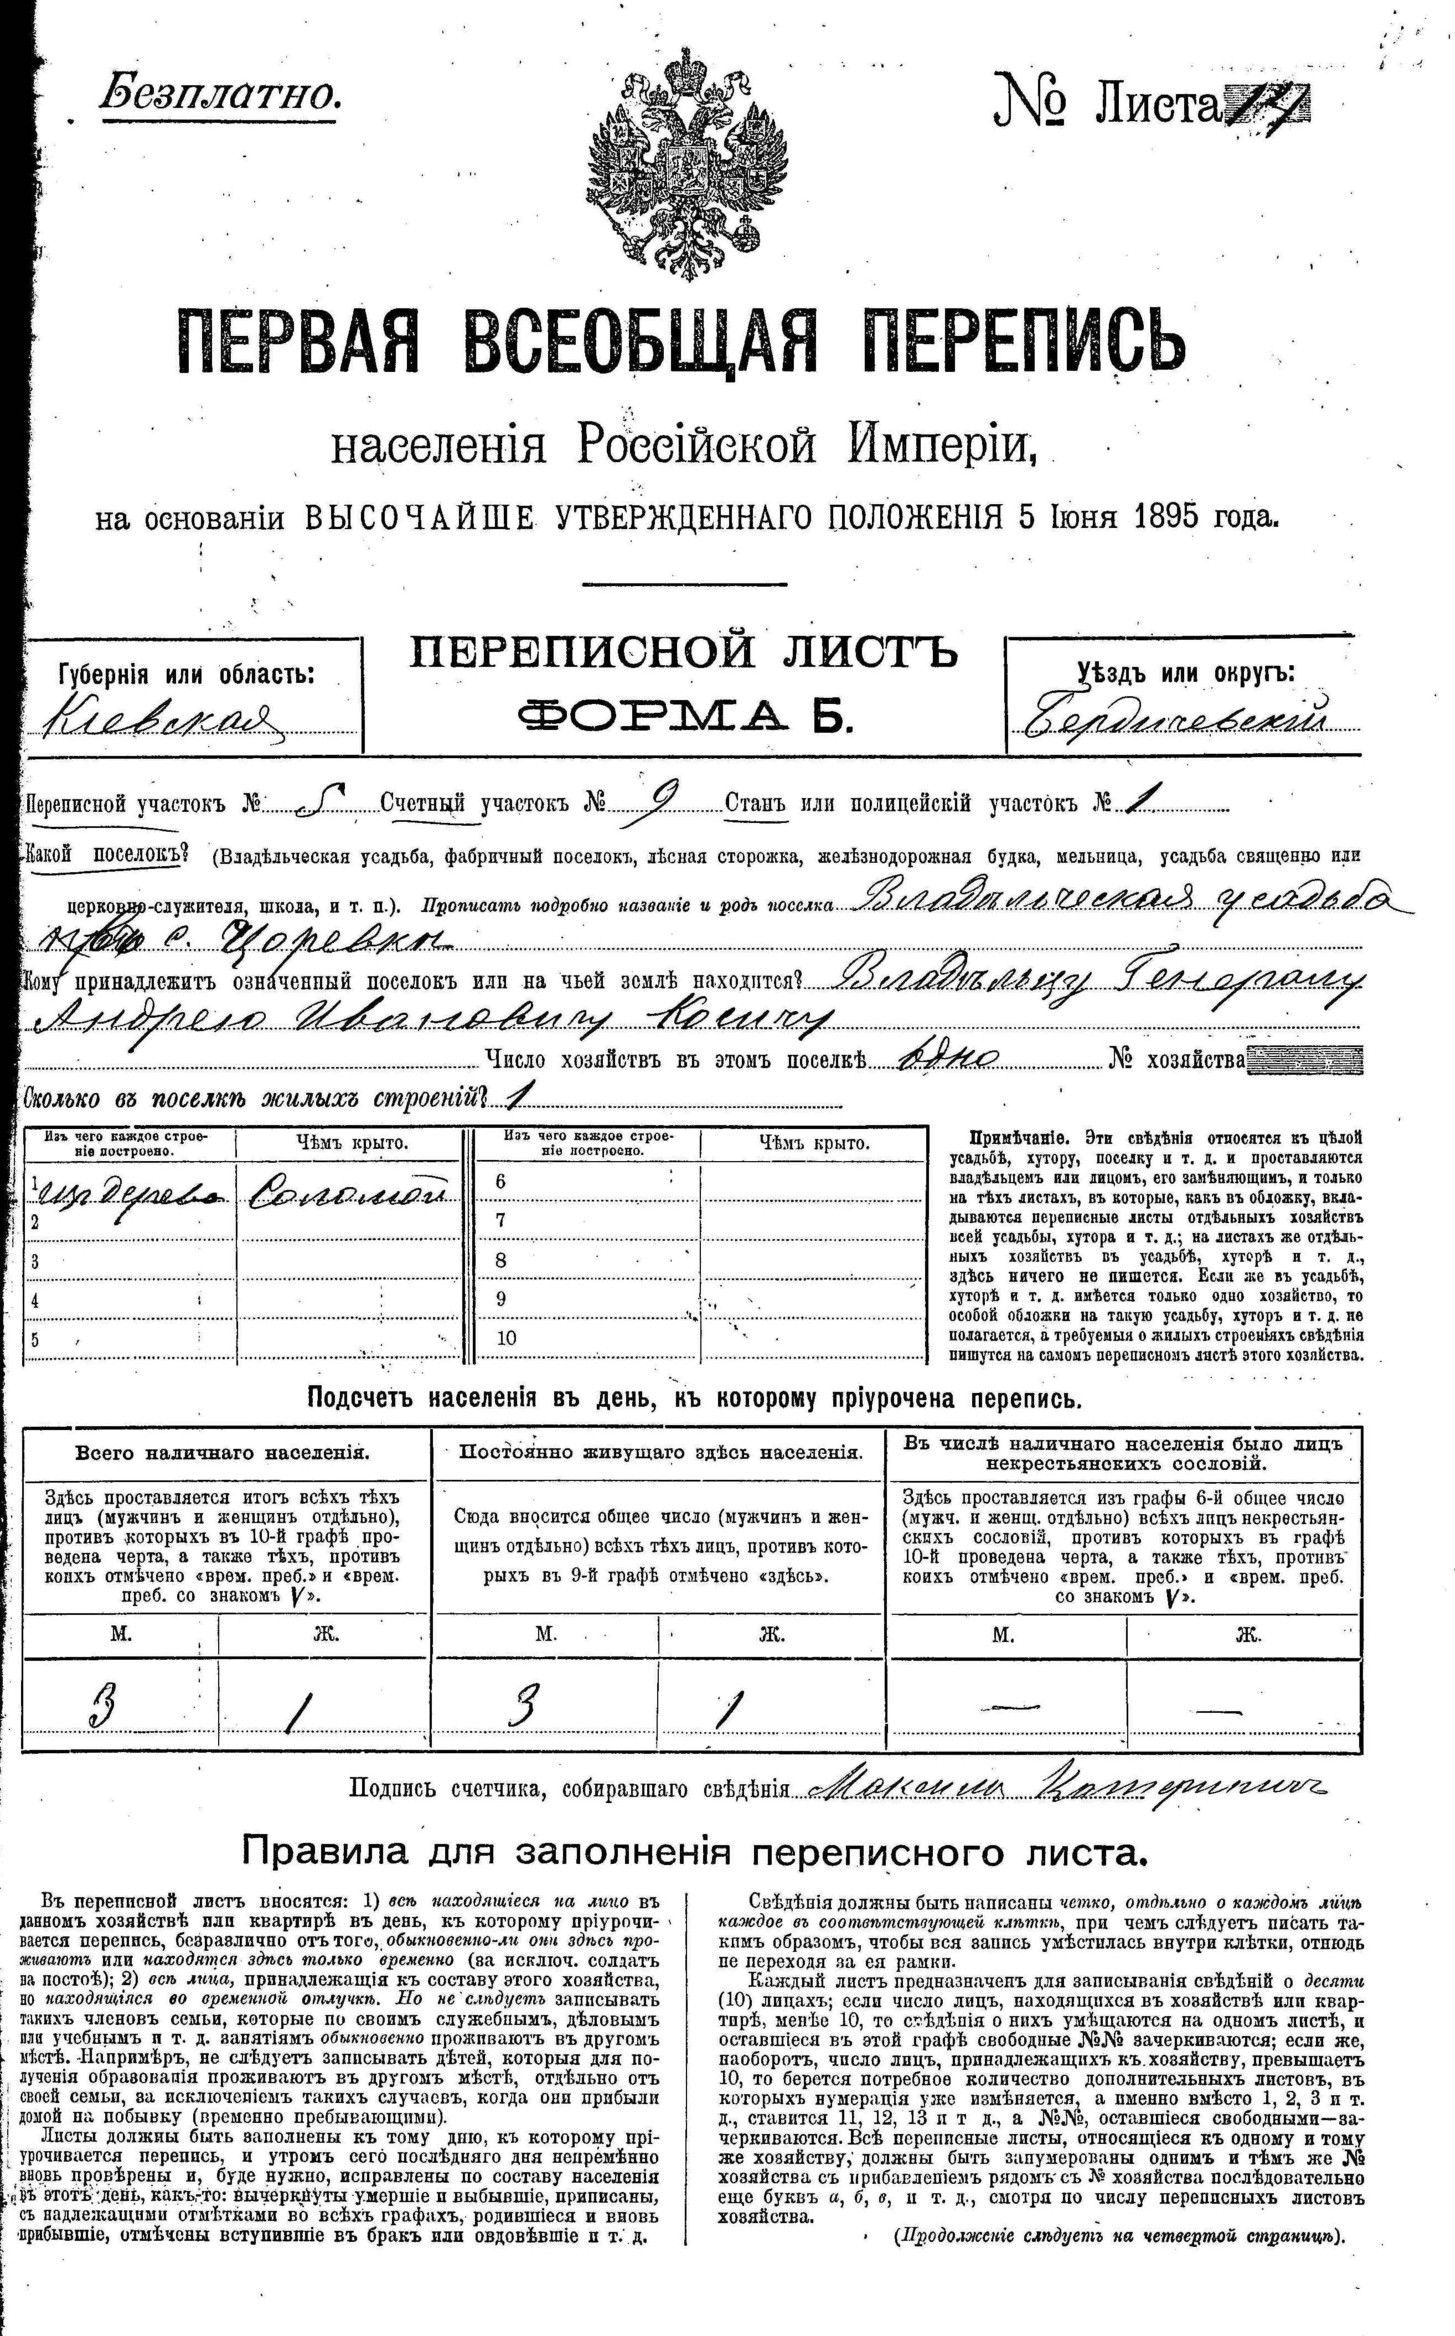 Безплатно.
№ Листа 14
ПЕРВАЯ ВСЕОБЩАЯ ПЕРЕПИСЬ
населенія Россійской Имперіи,
на основаніи ВЫСОЧАЙШЕ УТВЕРЖДЕННАГО ПОЛОЖЕНІЯ 5 Іюня 1895 года.
Губернія или область:
Кіевская
ПЕРЕПИСНОЙ ЛИСТЪ
ФОРМА Б.
Уѣздъ или округъ:
Бердичевскій
Переписной участокъ № 5 Счетный участокъ № 9 Станъ или полицейскій участокъ № 1
Какой поселокъ? (Владѣльческая усадьба, фабричный поселокъ, лѣсная сторожка, желѣзнодорожная будка, мельница, усадьба священно или
церковно-служителя, школа, и т. п.). Прописать подробно названіе и родъ поселка Владѣльческая усадьба
с. Царевки
Кому принадлежитъ означенный поселокъ или на чьей землѣ находится? Владѣльцу Генералу
Андрею Ивановичу Косичу
Число хозяйствъ въ этомъ поселкѣ одно № хозяйства
Сколько въ поселкѣ жилыхъ строеній? 1
Изъ чего каждое строе-
ніе построено.
Чѣмъ крыто.
Изъ чего каждое строе-
ніе построено.
Чѣмъ крыто.
1 изъ дерева Соломой
2
3
4
5
6
7
8
9
10
Примѣчаніе. Эти свѣдѣнія относятся къ цѣлой
усадьбѣ, хутору, поселку и т. д. и проставляются
владѣльцемъ или лицомъ, его замѣняющимъ, и только
на тѣхъ листахъ, въ которые, какъ въ обложку, вкла-
дываются переписные листы отдѣльныхъ хозяйствъ
всей усадьбы, хутора и т. д.; на листахъ же отдѣль-
ныхъ хозяйствъ въ усадьбѣ, хуторѣ и т. д.,
здѣсь ничего не пишется. Если же въ усадьбѣ,
хуторѣ и т. д. имѣется только одно хозяйство, то
особой обложки на такую усадьбу, хуторъ и т. д. не
полагается, а требуемыя о жилыхъ строеніяхъ свѣдѣнія
пишутся на самомъ переписномъ листѣ этого хозяйства.
Подсчетъ населенія въ день, къ которому пріурочена перепись.
Всего наличнаго населенія.
Здѣсь проставляется итогъ всѣхъ тѣхъ
лицъ (мужчинъ и женщинъ отдѣльно),
противъ которыхъ въ 10-й графѣ про-
ведена черта, а также тѣхъ, противъ
коихъ отмѣчено «врем. преб.» и «врем.
преб. со знакомъ V».
Постоянно живущаго здѣсь населенія.
Сюда вносится общее число (мужчинъ и жен-
щинъ отдѣльно) всѣхъ тѣхъ лицъ, противъ кото-
рыхъ въ 9-й графѣ отмѣчено «здѣсь».
Въ числѣ наличнаго населенія было лицъ
некрестьянскихъ сословій.
Здѣсь проставляется изъ графы 6-й общее число
(мужч. и женщ. отдѣльно) всѣхъ лицъ некрестьян-
скихъ сословій, противъ которыхъ въ графѣ
10-й проведена черта, а также тѣхъ, противъ
коихъ отмѣчено «врем. преб.» и «врем. преб.
со знакомъ V».
М. Ж. М. Ж. М. Ж.
3 1 3 1 — —
Подпись счетчика, собиравшаго свѣдѣнія Максимъ
Правила для заполненія переписного листа.
Въ переписной листъ вносятся: 1) всѣ находящіеся на лицо въ
данномъ хозяйствѣ или квартирѣ въ день, къ которому пріурочи-
вается перепись, безразлично отъ того, обыкновенно-ли они здѣсь про-
живаютъ или находятся здѣсь только временно (за исключ. солдатъ
на постоѣ); 2) всѣ лица, принадлежащія къ составу этого хозяйства,
но находящіяся во временной отлучкѣ. Но не слѣдуетъ записывать
такихъ членовъ семьи, которые по своимъ служебнымъ, дѣловымъ
или учебнымъ и т. д. занятіямъ обыкновенно проживаютъ въ другомъ
мѣстѣ. Напримѣръ, не слѣдуетъ записывать дѣтей, которыя для по-
лученія образованія проживаютъ въ другомъ мѣстѣ, отдѣльно отъ
своей семьи, за исключеніемъ такихъ случаевъ, когда они прибыли
домой на побывку (временно пребывающими).
Листы должны быть заполнены къ тому дню, къ которому прі-
урочивается перепись, и утромъ сего послѣдняго дня непремѣнно
вновь провѣрены и, буде нужно, исправлены по составу населенія
въ этотъ день, какъ-то: вычеркнуты умершіе и выбывшіе, приписаны,
съ надлежащими отмѣтками во всѣхъ графахъ, родившіеся и вновь
прибывшіе, отмѣчены вступившіе въ бракъ или овдовѣвшіе и т. д.
Свѣдѣнія должны быть написаны четко, отдѣльно о каждомъ лицѣ
каждое въ соотвѣтствующей клѣткѣ, при чемъ слѣдуетъ писать та-
кимъ образомъ, чтобы вся запись умѣстилась внутри клѣтки, отнюдь
не переходя за ея рамки.
Каждый листъ предназначенъ для записыванія свѣдѣній о десяти
(10) лицахъ; если число лицъ, находящихся въ хозяйствѣ или квар-
тирѣ, менѣе 10, то свѣдѣнія о нихъ умѣщаются на одномъ листѣ, и
оставшіеся въ этой графѣ свободные №№ зачеркиваются; если же,
наоборотъ, число лицъ, принадлежащихъ къ хозяйству, превышаетъ
10, то берется потребное количество дополнительныхъ листовъ, въ
которыхъ нумерація уже измѣняется, а именно вмѣсто 1, 2, 3 и т.
д., ставится 11, 12, 13 и т д., а №№, оставшіеся свободными—за-
черкиваются. Всѣ переписные листы, относящіеся къ одному и тому
же хозяйству, должны быть занумерованы однимъ и тѣмъ же №
хозяйства съ прибавленіемъ рядомъ съ № хозяйства послѣдовательно
еще буквъ а, б, в, и т. д., смотря по числу переписныхъ листовъ
хозяйства.
(Продолженіе слѣдуетъ на четвертой страницѣ).